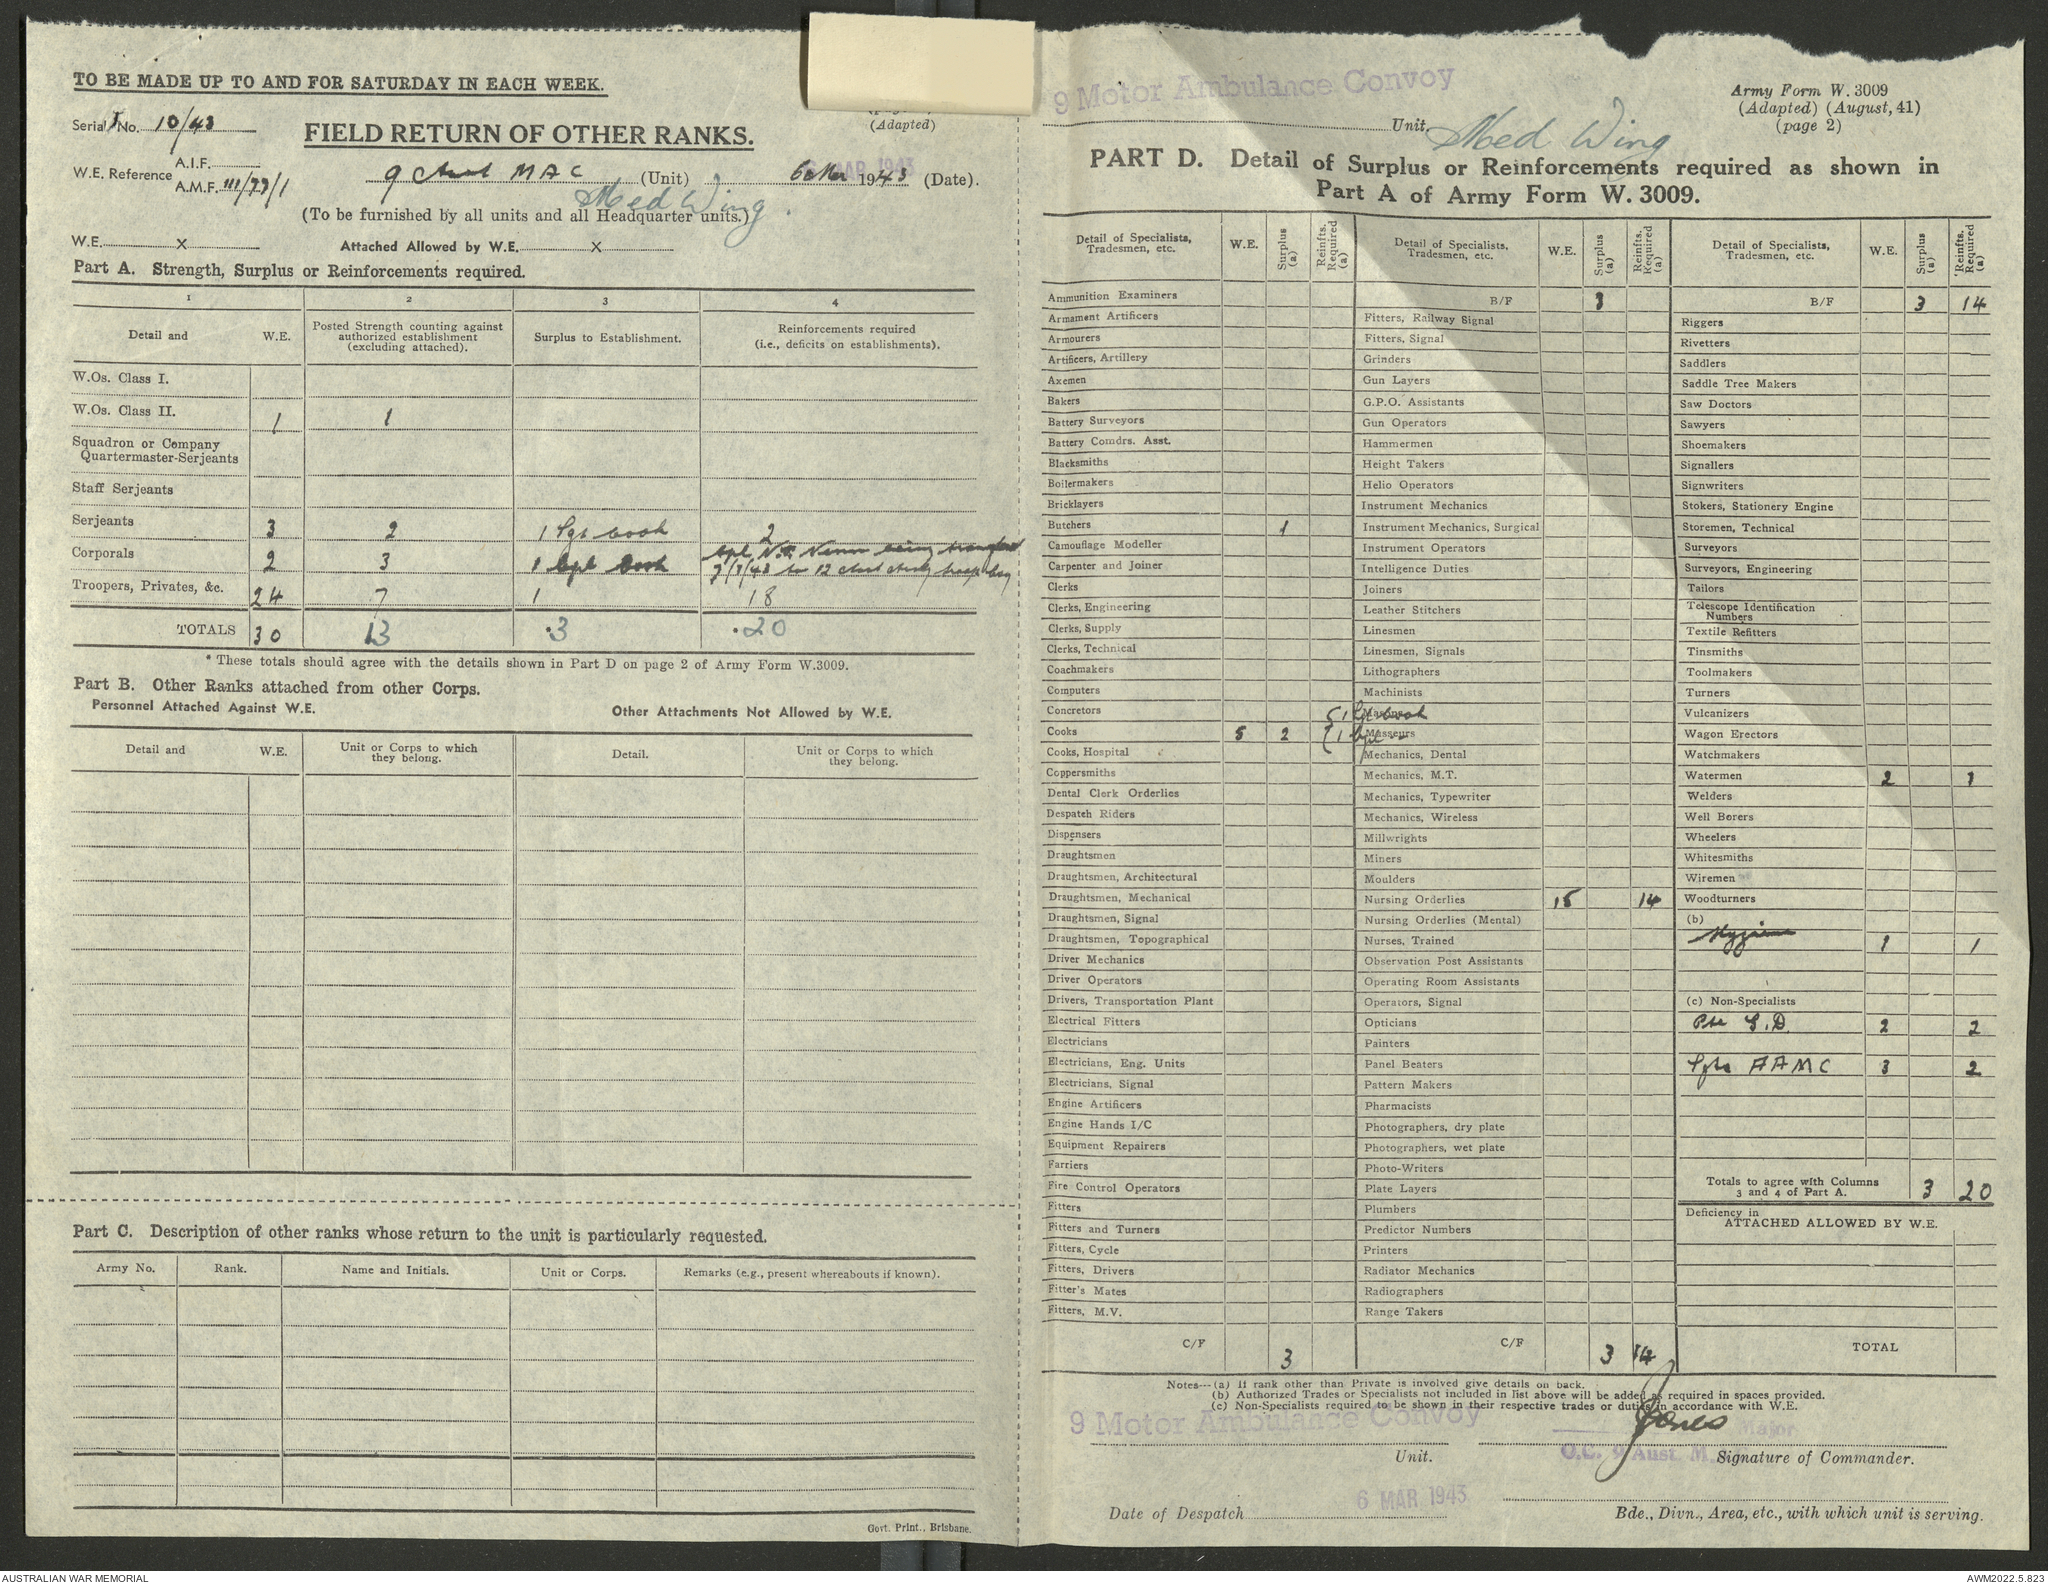 TO BE MADE UP TO AND FOR SATURDAY IN EACH WEEK.
Serial No. 10/43
FIELD RETURN OF OTHER RANKS.
(Adapted)
W.E. Reference A.I.F.
A.M.F. III/77/1
9 Aust MAC (Unit) 6 Mar 1943 (Date).
6 MAR 1943
Med Wing
(To be furnished by all units and all Headquarter units.)
W.E. x Attached Allowed by W.E. x
Part A. Strength, Surplus or Reinforcements required.
1 2 3 4
Detail and W.E. Posted Strength counting against authorized establishment (excluding attached). Surplus to Establishment. Reinforcements required (i.e., deficits on establishments).
W.Os. Class I.
W.Os. Class II. 1 1
Squadron or Company Quartermaster-Serjeants
Staff Serjeants
Serjeants 3 2 1 Sgt Cook 2
Corporals 2 3 1 Cpl Cook
Troopers, Privates, &c. 24 7 1 18
TOTALS 30 13 *3 *20
* These totals should agree with the details shown in Part D on page 2 of Army Form W.3009.
Part B. Other Ranks attached from other Corps.
Personnel Attached Against W.E. Other Attachments Not Allowed by W.E.
Detail and W.E. Unit or Corps to which they belong. Detail. Unit or Corps to which they belong.
Part C. Description of other ranks whose return to the unit is particularly requested.
Army No. Rank. Name and Initials. Unit or Corps. Remarks (e.g., present whereabouts if known).
Govt. Print., Brisbane.
9 Motor Ambulance Convoy
Unit Med Wing
Army Form W. 3009
(Adapted) (August, 41)
(page 2)
PART D. Detail of Surplus or Reinforcements required as shown in
Part A of Army Form W. 3009.
Detail of Specialists, Tradesmen, etc. W.E. Surplus (a) Reinfts. Required (a)
Ammunition Examiners
Armament Artificers
Armourers
Artificers, Artillery
Axemen
Bakers
Battery Surveyors
Battery Comdrs. Asst.
Blacksmiths
Boilermakers
Bricklayers
Butchers 1
Camouflage Modeller
Carpenter and Joiner
Clerks
Clerks, Engineering
Clerks, Supply
Clerks, Technical
Coachmakers
Computers
Concretors
Cooks 5 2 1 Sgt Cook 1 Cpl "
Cooks, Hospital
Coppersmiths
Dental Clerk Orderlies
Despatch Riders
Dispensers
Draughtsmen
Draughtsmen, Architectural
Draughtsmen, Mechanical
Draughtsmen, Signal
Draughtsmen, Topographical
Driver Mechanics
Driver Operators
Drivers, Transportation Plant
Electrical Fitters
Electricians
Electricians, Eng. Units
Electricians, Signal
Engine Artificers
Engine Hands I/C
Equipment Repairers
Farriers
Fire Control Operators
Fitters
Fitters and Turners
Fitters, Cycle
Fitters, Drivers
Fitter's Mates
Fitters, M.V.
C/F 3
Detail of Specialists, Tradesmen, etc. W.E. Surplus (a) Reinfts. Required (a)
B/F 3
Fitters, Railway Signal
Fitters, Signal
Grinders
Gun Layers
G.P.O. Assistants
Gun Operators
Hammermen
Height Takers
Helio Operators
Instrument Mechanics
Instrument Mechanics, Surgical
Instrument Operators
Intelligence Duties
Joiners
Leather Stitchers
Linesmen
Linesmen, Signals
Lithographers
Machinists
Masons
Masseurs
Mechanics, Dental
Mechanics, M.T.
Mechanics, Typewriter
Mechanics, Wireless
Millwrights
Miners
Moulders
Nursing Orderlies 15 14
Nursing Orderlies (Mental)
Nurses, Trained
Observation Post Assistants
Operating Room Assistants
Operators, Signal
Opticians
Painters
Panel Beaters
Pattern Makers
Pharmacists
Photographers, dry plate
Photographers, wet plate
Photo-Writers
Plate Layers
Plumbers
Predictor Numbers
Printers
Radiator Mechanics
Radiographers
Range Takers
C/F 3 14
Detail of Specialists, Tradesmen, etc. W.E. Surplus (a) Reinfts. Required (a)
B/F 3 14
Riggers
Rivetters
Saddlers
Saddle Tree Makers
Saw Doctors
Sawyers
Shoemakers
Signallers
Signwriters
Stokers, Stationery Engine
Storemen, Technical
Surveyors
Surveyors, Engineering
Tailors
Telescope Identification Numbers
Textile Refitters
Tinsmiths
Toolmakers
Turners
Vulcanizers
Wagon Erectors
Watchmakers
Watermen 2 1
Welders
Well Borers
Wheelers
Whitesmiths
Wiremen
Woodturners
(b)
Hygiene 1 1
(c) Non-Specialists
Pte G.D. 2 2
Sgts AAMC 3 2
Totals to agree with Columns 3 and 4 of Part A. 3 20
Deficiency in
ATTACHED ALLOWED BY W.E.
TOTAL
Notes—(a) If rank other than Private is involved give details on back.
(b) Authorized Trades or Specialists not included in list above will be added as required in spaces provided.
(c) Non-Specialists required to be shown in their respective trades or duties in accordance with W.E.
9 Motor Ambulance Convoy
Unit.
Jones Major
O.C. 9 Aust. M.
Signature of Commander.
Date of Despatch 6 MAR 1943
Bde., Divn., Area, etc., with which unit is serving.
AUSTRALIAN WAR MEMORIAL
AWM2022.5.823